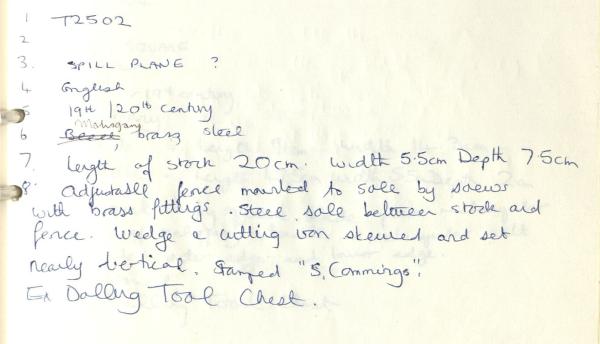 1 T2502
2
3. SPILL PLANE ?
4 English
5 19th / 20th century
Mahogany
6 Beech, brass steel
7. Length of stock 20cm. width 5.5cm Depth 7.5cm
8. Adjustable fence mounted to sole by screws
with brass fittings. Steel sole between stock and
fence. Wedge & cutting iron skewed and set
nearly vertical. Stamped "S. Cummings".
Ex Dalling Tool Chest.